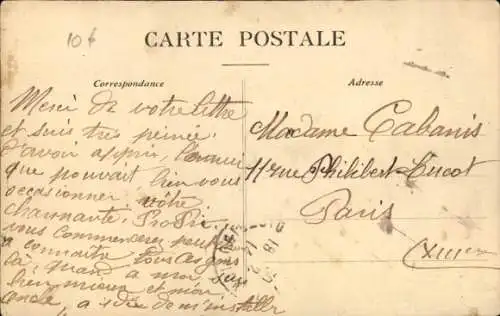 10 f
CARTE POSTALE
Correspondance
Adresse
Merci de votre lettre
et suis très peinée
d'avoir appris, l'ennui
que pouvait bien vous
occasionner votre
charmante
vous commencerez
a connaitre
là
bien mieux et mon
a idée de m'installer
Madame Cabanis
11 rue Philibert-Lucot
Paris
XIII